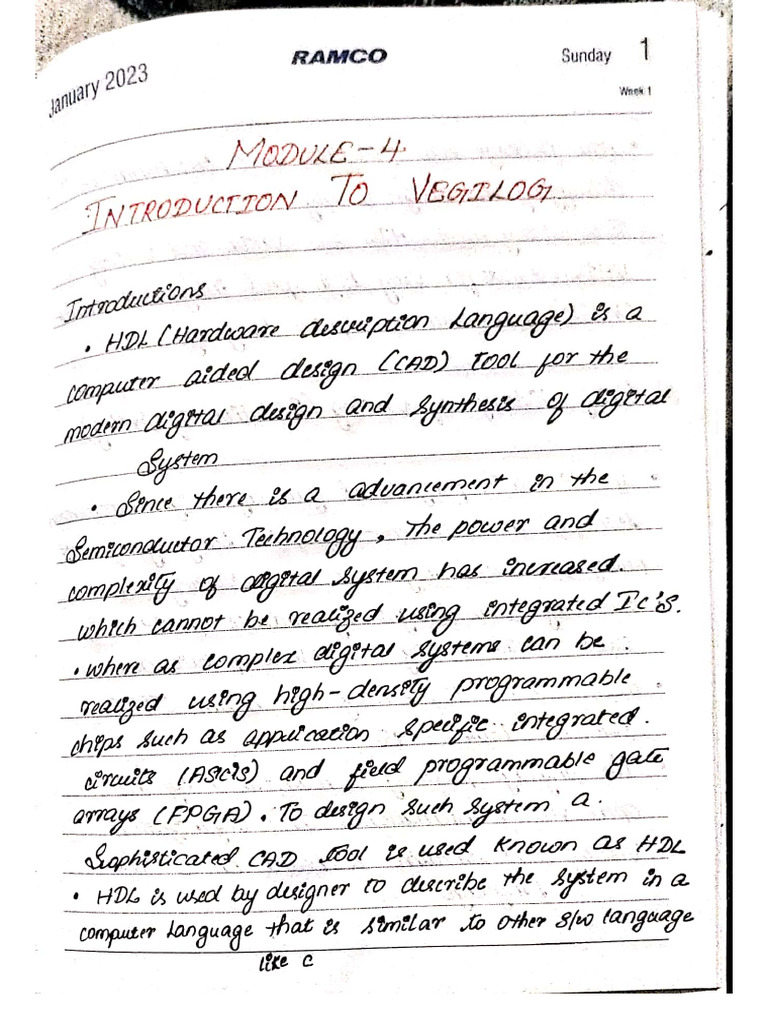 January 2023 RAMCO Sunday 1
Week 1
MODULE-4
INTRODUCTION TO VEGILOG
Introductions
• HDL (Hardware description Language) is a
computer aided design (CAD) tool for the
modern digital design and synthesis of digital
System
• Since there is a advancement in the
Semiconductor Technology, The power and
complexity of digital system has increased.
which cannot be realized using integrated Ic's.
• where as complex digital systems can be
realized using high-density programmable
chips such as application specific integrated.
circuits (ASCIS) and field programmable gate
arrays (FPGA). To design such system a.
Sophisticated CAD tool is used known as HDL
• HDL is used by designer to describe the system in a
computer Language that is similar to other s/w language
like c